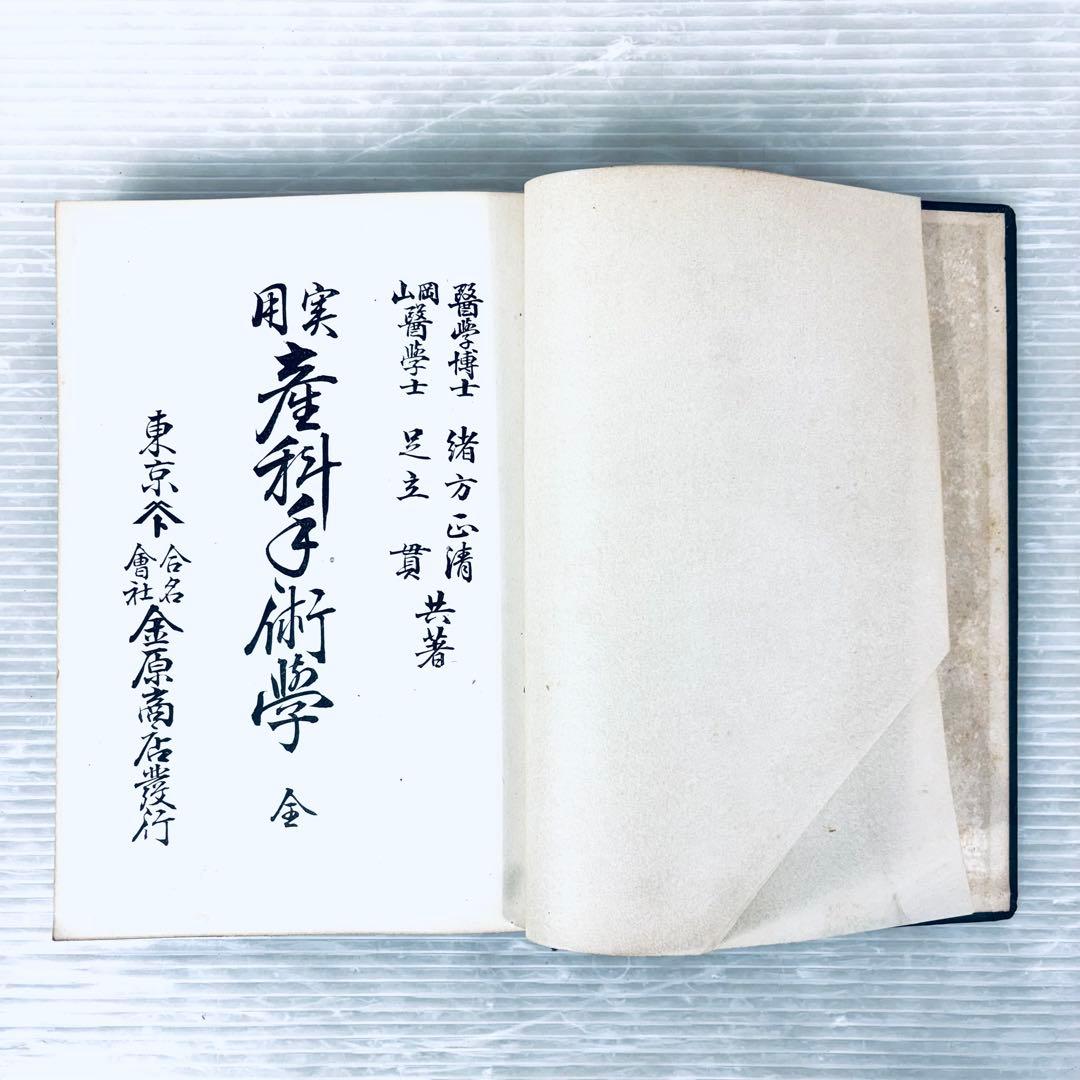 醫學博士 緒方正清
岡山醫學士 足立貫
共著
実用
産科手術學 全
東京
合名會社
金原商店發行